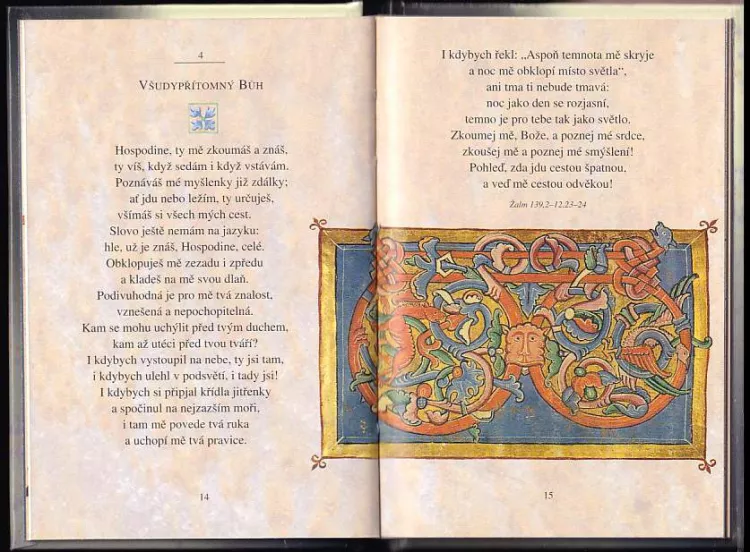 4
Všudypřítomný Bůh
Hospodine, ty mě zkoumáš a znáš,
ty víš, když sedám i když vstávám.
Poznáváš mé myšlenky již zdálky;
ať jdu nebo ležím, ty určuješ,
všímáš si všech mých cest.
Slovo ještě nemám na jazyku:
hle, už je znáš, Hospodine, celé.
Obklopuješ mě zezadu i zpředu
a kladeš na mě svou dlaň.
Podivuhodná je pro mě tvá znalost,
vznešená a nepochopitelná.
Kam se mohu uchýlit před tvým duchem,
kam až utéci před tvou tváří?
I kdybych vystoupil na nebe, ty jsi tam,
i kdybych ulehl v podsvětí, i tady jsi!
I kdybych si připjal křídla jitřenky
a spočinul na nejzazším moři,
i tam mě povede tvá ruka
a uchopí mě tvá pravice.
14
I kdybych řekl: „Aspoň temnota mě skryje
a noc mě obklopí místo světla“,
ani tma ti nebude tmavá:
noc jako den se rozjasní,
temno je pro tebe tak jako světlo.
Zkoumej mě, Bože, a poznej mé srdce,
zkoušej mě a poznej mé smýšlení!
Pohleď, zda jdu cestou špatnou,
a veď mě cestou odvěkou!
Žalm 139,2–12.23–24
15